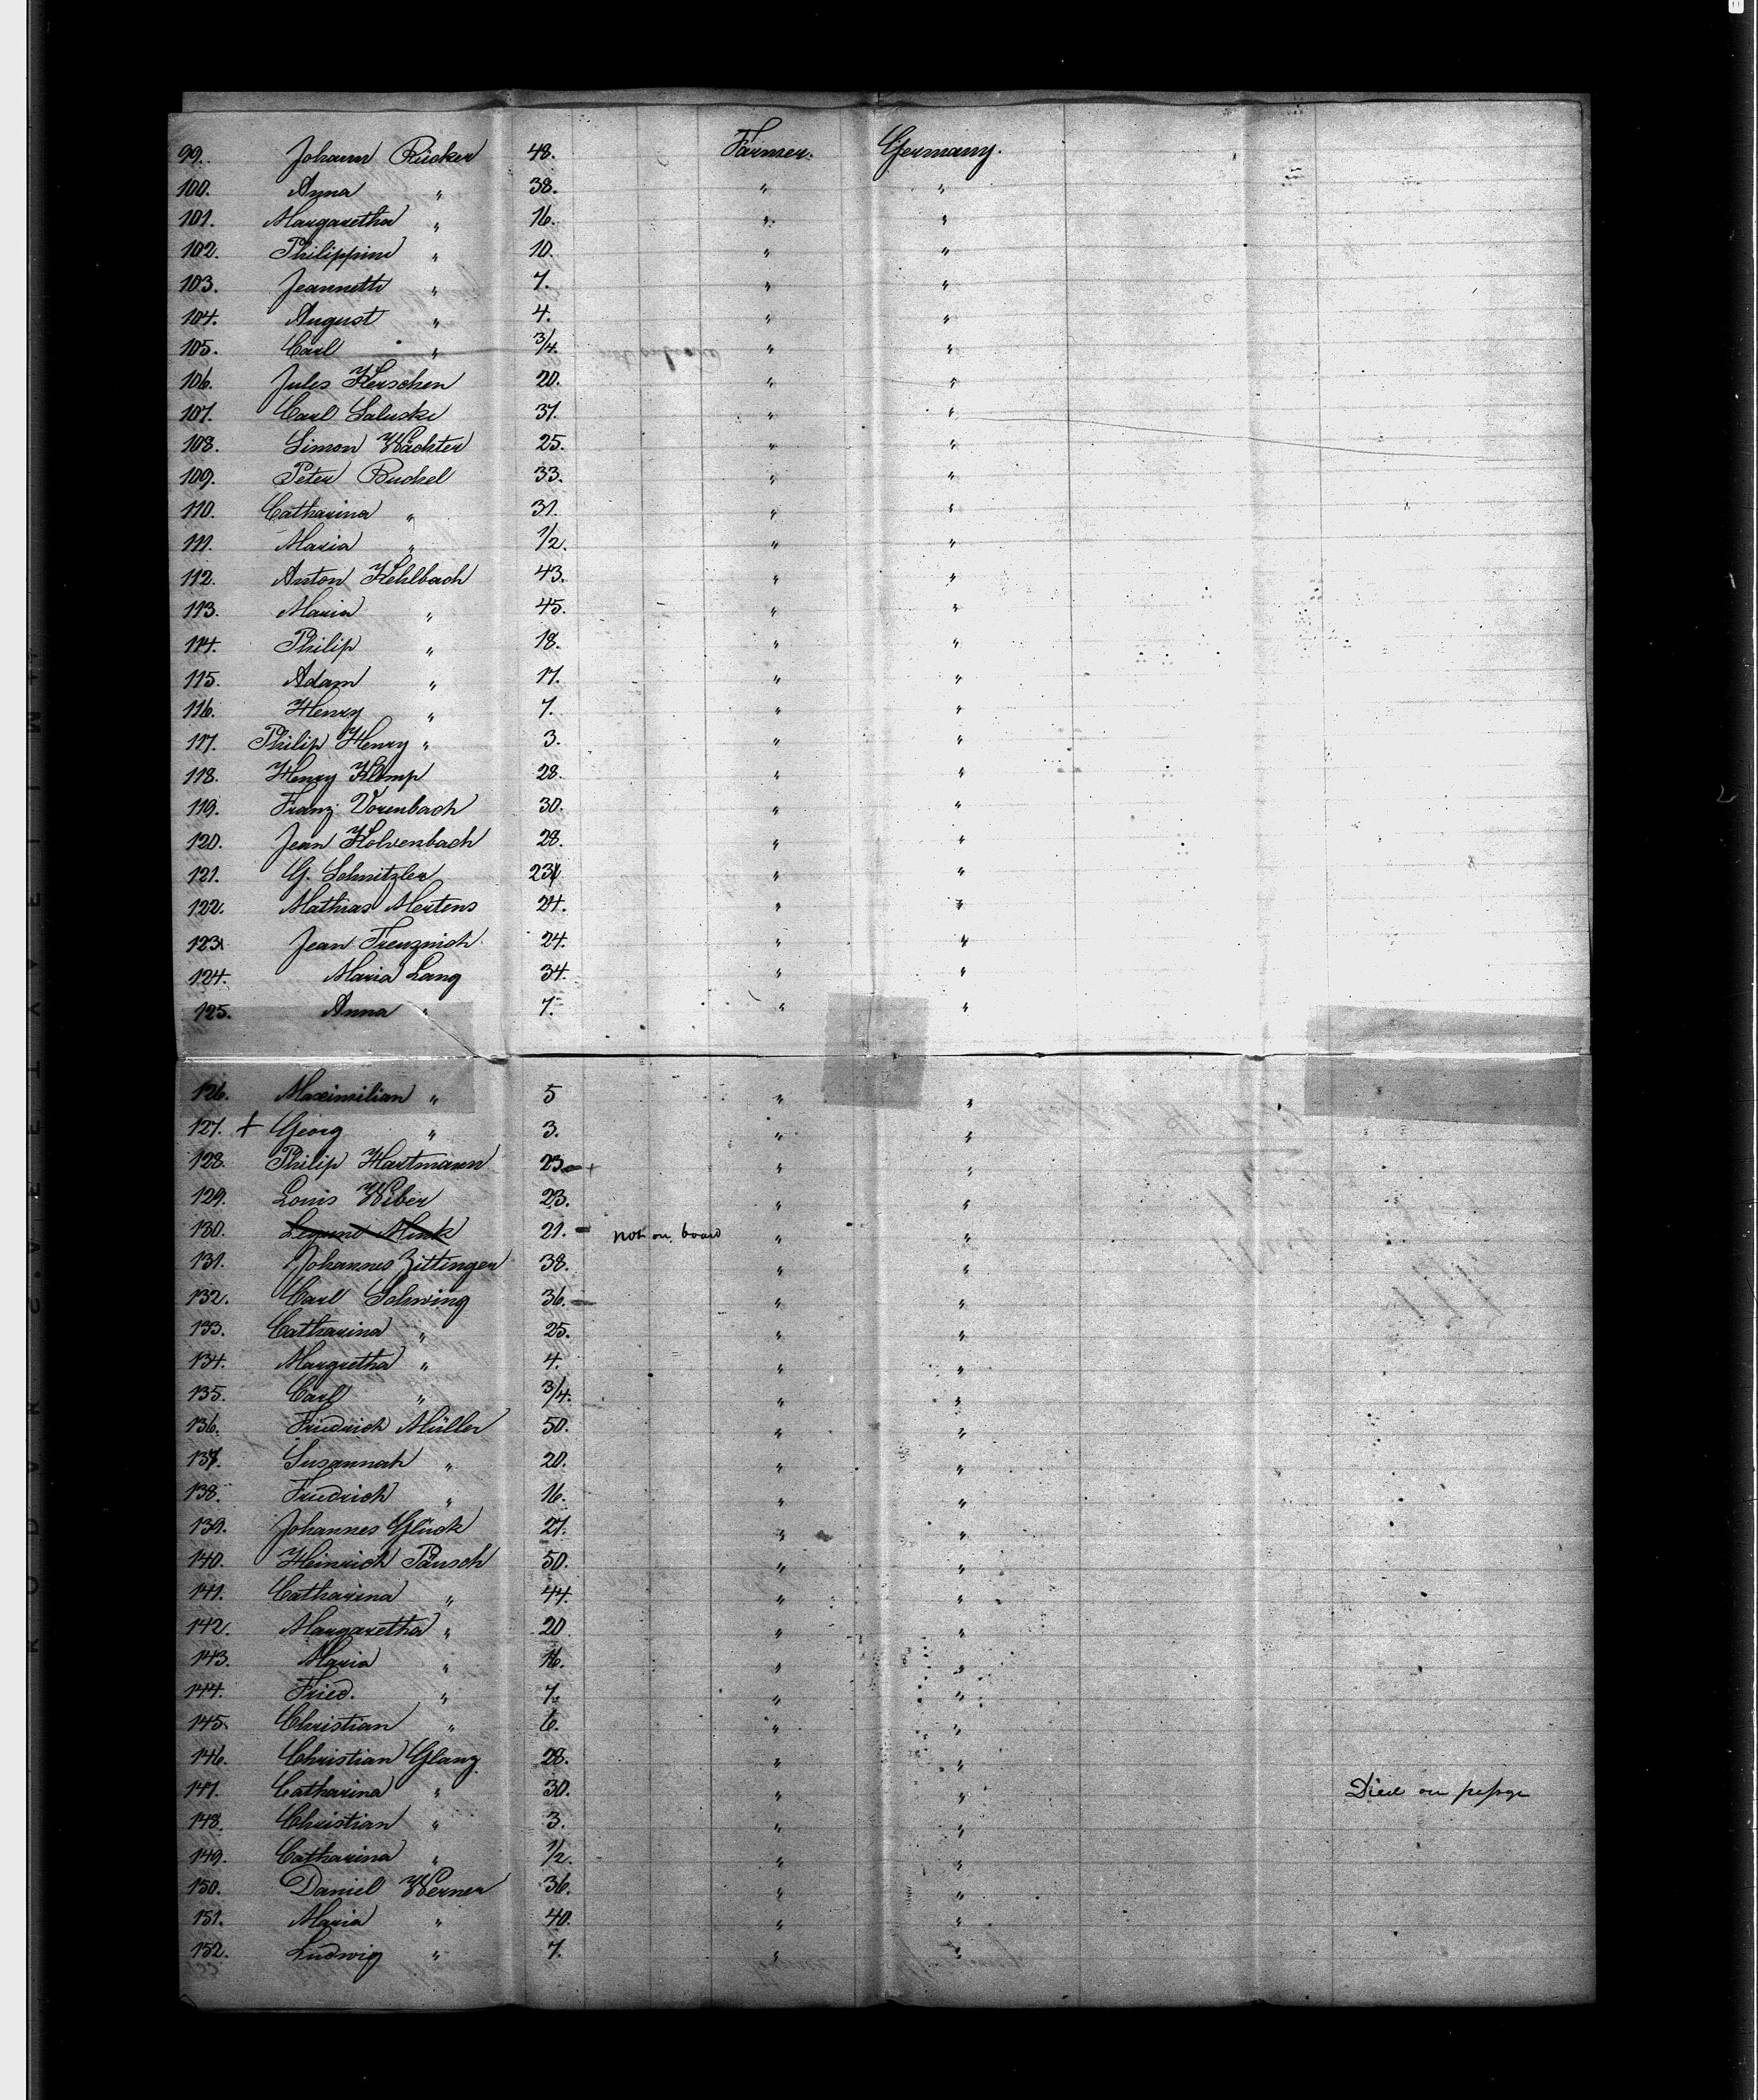 99. Johann Rücker 48. Farmer. Germany.
100. Anna " 38. " "
101. Margaretha " 16. " "
102. Philippine " 10. " "
103. Jeannette " 7. " "
104. August " 4. " "
105. Carl " 3/4. " "
106. Jules Kerschen 20. " "
107. Carl Saluske 37. " "
108. Simon Wächter 25. " "
109. Peter Buckel 33. " "
110. Catharina " 31. " "
111. Maria " 1/2. " "
112. Anton Kehlbach 43. " "
113. Maria " 45. " "
114. Philip " 18. " "
115. Adam " 17. " "
116. Henry " 7. " "
117. Philip Henry " 3. " "
118. Henry Klomp 28. " "
119. Franz Vorenbach 30. " "
120. Jean Kolvenbach 28. " "
121. G. Schnitzler 23. " "
122. Mathias Mertens 24. " "
123. Jean 24. " "
124. Maria Lang 34. " "
125. Anna " 7. " "
126. Maximilian " 5 " "
127. + Georg " 3. " "
128. Philip Hartmann 23. + " "
129. Louis Weber 23. " "
130. Mink 21. - not on board " "
131. Johannes Zittinger 38. " "
132. Carl Schwing 36. " "
133. Catharina " 25. " "
134. Margretha " 4. " "
135. Carl " 3/4. " "
136. Friedrich Müller 50. " "
137. Susannah " 20. " "
138. Friedrich " 16. " "
139. Johannes Glück 27. " "
140. Heinrich Päusch 50. " "
141. Catharina " 44. " "
142. Margaretha " 20. " "
143. Maria " 16. " "
144. Fried. " 7. " "
145. Christian " 6. " "
146. Christian Glanz 28. " "
147. Catharina " 30. " " Died on
148. Christian " 3. " "
149. Catharina " 1/2. " "
150. Daniel Werner 36. " "
151. Maria " 40. " "
152. Ludwig " 7. " "